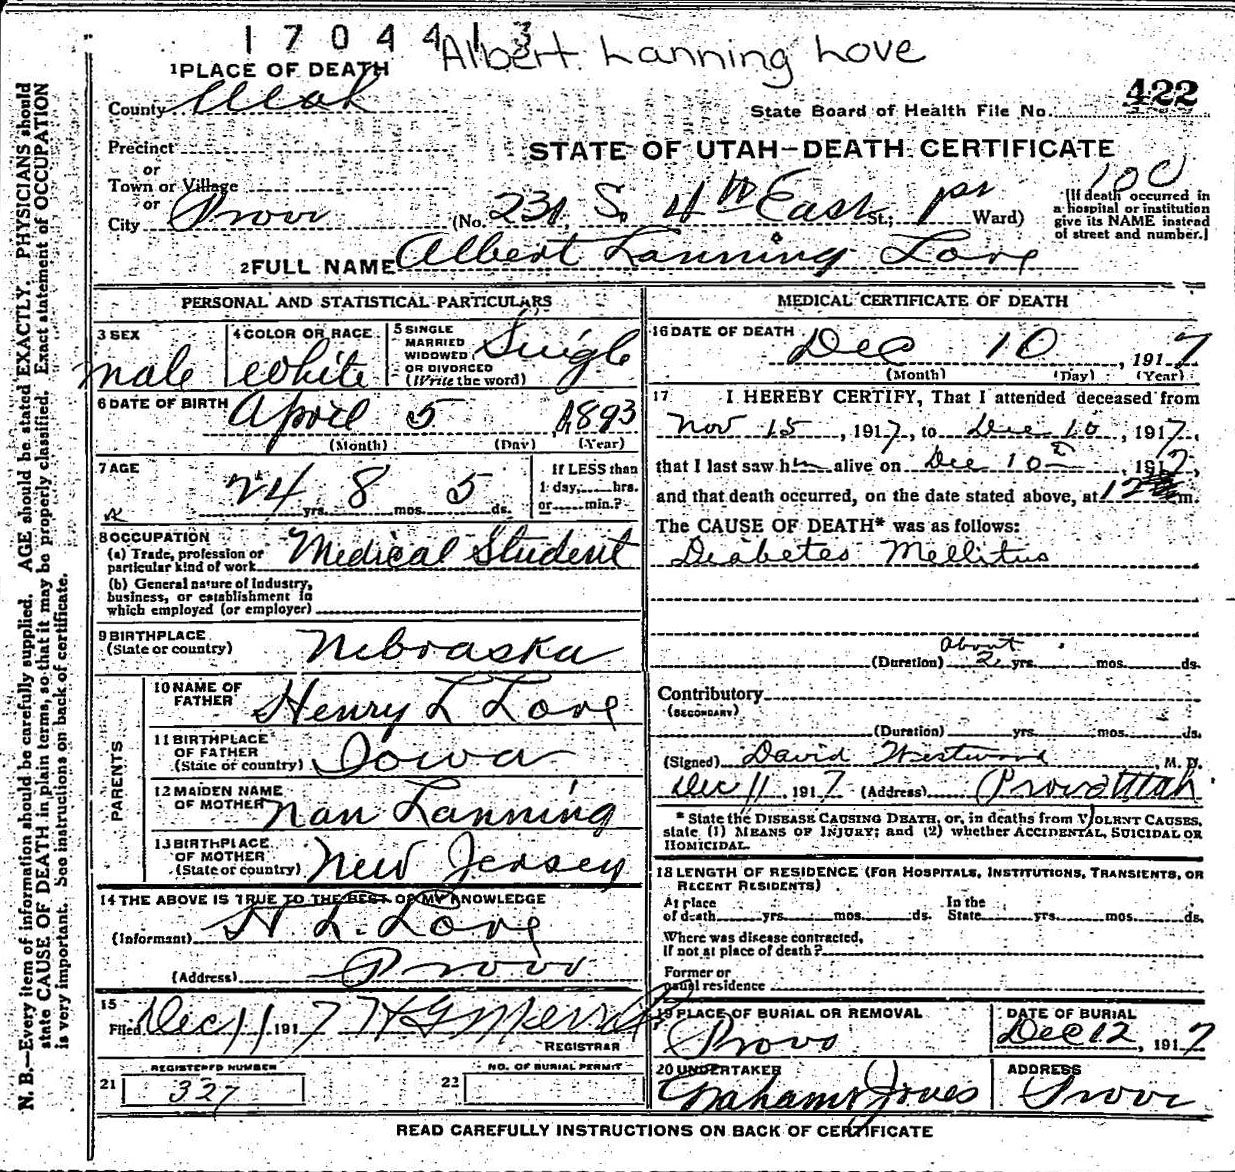 1 7 0 4 4 1 3
Albert Lanning Love
1 PLACE OF DEATH
County Utah
State Board of Health File No. 422
Precinct
or
Town or Village
or
City Provo
STATE OF UTAH—DEATH CERTIFICATE
(No. 231 S. 4th East St.; Ward)
[If death occurred in
a hospital or institution
give its NAME instead
of street and number.]
2 FULL NAME Albert Lanning Love
PERSONAL AND STATISTICAL PARTICULARS
3 SEX
male
4 COLOR OR RACE
White
5 SINGLE
MARRIED
WIDOWED
OR DIVORCED
(Write the word)
Single
6 DATE OF BIRTH April 5, 1893
(Month) (Day) (Year)
7 AGE
24 yrs. 8 mos. 5 ds.
If LESS than
1 day, hrs.
or min.?
8 OCCUPATION
(a) Trade, profession or
particular kind of work Medical Student
(b) General nature of Industry,
business, or establishment in
which employed (or employer)
9 BIRTHPLACE
(State or country) Nebraska
PARENTS
10 NAME OF
FATHER Henry L Love
11 BIRTHPLACE
OF FATHER
(State or country) Iowa
12 MAIDEN NAME
OF MOTHER Nan Lanning
13 BIRTHPLACE
OF MOTHER
(State or country) New Jersey
14 THE ABOVE IS TRUE TO THE BEST OF MY KNOWLEDGE
(Informant) H. L. Love
(Address) Provo
15
Filed Dec 11 1917
REGISTRAR
REGISTERED NUMBER
21 327
NO. OF BURIAL PERMIT
22
MEDICAL CERTIFICATE OF DEATH
16 DATE OF DEATH Dec 10, 1917
(Month) (Day) (Year)
17 I HEREBY CERTIFY, That I attended deceased from
Nov 15, 1917, to Dec 10, 1917,
that I last saw him alive on Dec 10th, 1917,
and that death occurred, on the date stated above, at 12 m.
The CAUSE OF DEATH* was as follows:
Diabetes Mellitus
about
(Duration) 2 yrs. mos. ds.
Contributory
(SECONDARY)
(Duration) yrs. mos. ds.
(Signed) David Westwood, M. D.
Dec 11 1917 (Address) Provo Utah
* State the DISEASE CAUSING DEATH, or, in deaths from VIOLENT CAUSES,
state (1) MEANS OF INJURY; and (2) whether ACCIDENTAL, SUICIDAL OR
HOMICIDAL.
18 LENGTH OF RESIDENCE (FOR HOSPITALS, INSTITUTIONS, TRANSIENTS, OR
RECENT RESIDENTS)
At place
of death yrs. mos. ds.
In the
State yrs. mos. ds.
Where was disease contracted,
if not at place of death?
Former or
usual residence
19 PLACE OF BURIAL OR REMOVAL
Provo
DATE OF BURIAL
Dec 12, 1917
20 UNDERTAKER
Graham & Jones
ADDRESS
Provo
READ CAREFULLY INSTRUCTIONS ON BACK OF CERTIFICATE
N. B.—Every item of information should be carefully supplied. AGE should be stated EXACTLY. PHYSICIANS should
state CAUSE OF DEATH in plain terms, so that it may be properly classified. Exact statement of OCCUPATION
is very important. See instructions on back of certificate.